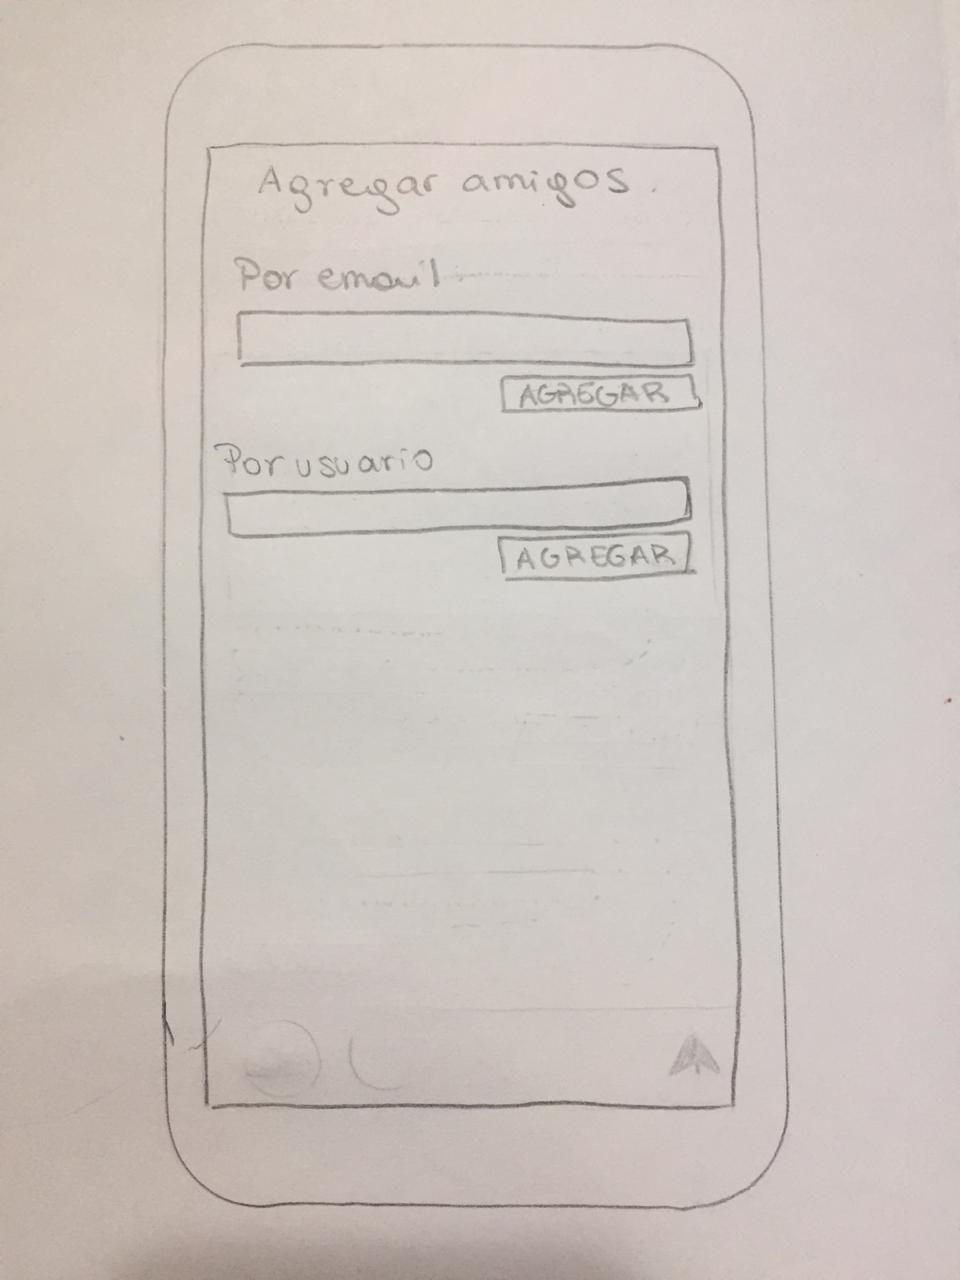 Agregar amigos.
Por email
AGREGAR
Por usuario
AGREGAR